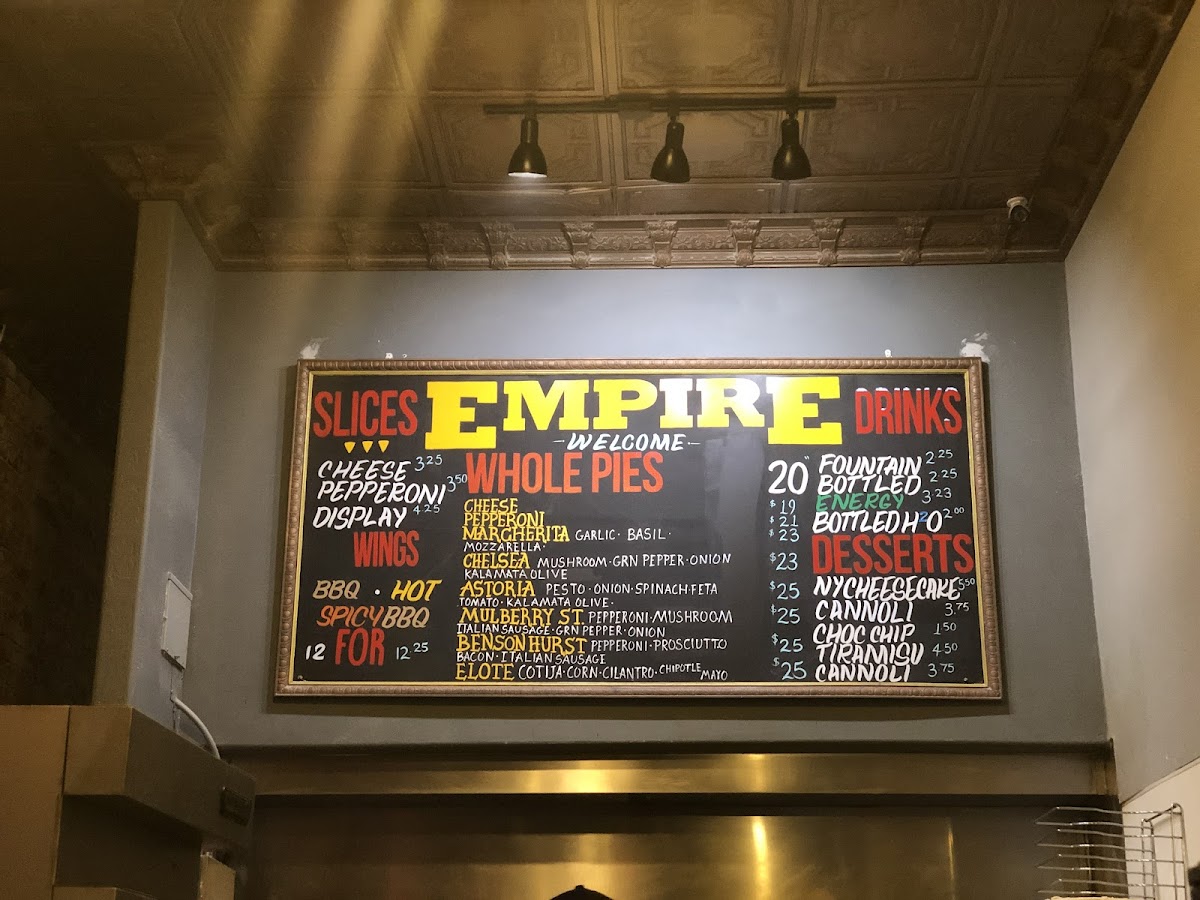 EMPIRE
-WELCOME-
SLICES
CHEESE 3.25
PEPPERONI 3.50
DISPLAY 4.25
WINGS
BBQ · HOT
SPICY BBQ
12 FOR 12.25
WHOLE PIES 20"
CHEESE $19
PEPPERONI $21
MARGHERITA GARLIC · BASIL · $23
MOZZARELLA ·
CHELSEA MUSHROOM · GRN PEPPER · ONION $23
KALAMATA OLIVE
ASTORIA PESTO · ONION · SPINACH · FETA $25
TOMATO · KALAMATA OLIVE ·
MULBERRY ST. PEPPERONI · MUSHROOM $25
ITALIAN SAUSAGE · GRN PEPPER · ONION
BENSONHURST PEPPERONI · PROSCIUTTO $25
BACON · ITALIAN SAUSAGE
ELOTE COTIJA · CORN · CILANTRO · CHIPOTLE MAYO $25
DRINKS
FOUNTAIN 2.25
BOTTLED 2.25
ENERGY 3.23
BOTTLED H2O 2.00
DESSERTS
NY CHEESECAKE 5.50
CANNOLI 3.75
CHOC CHIP 1.50
TIRAMISU 4.50
CANNOLI 3.75